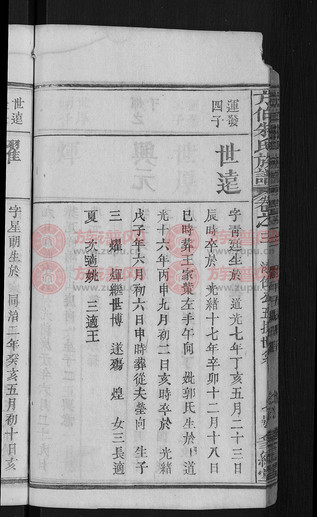 氏族譜 卷之三
運發
四子
世遠
字青廷生於 道光七年丁亥五月二十三日
辰時卒於 光緒十七年辛卯十二月十八日
巳時葬王家蓃左手午向 妣郭氏生於 道
光十六年丙申九月初二日亥時卒於 光緒
戊子年六月初六日申時葬從夫塋向 生子
三 燿 輝繼世博 遂殤 煌 女三長適
夏 次適姚 三適王
世遠
燿
字星朗生於 同治二年癸亥五月初十日亥
族譜网
www.zupu.cn